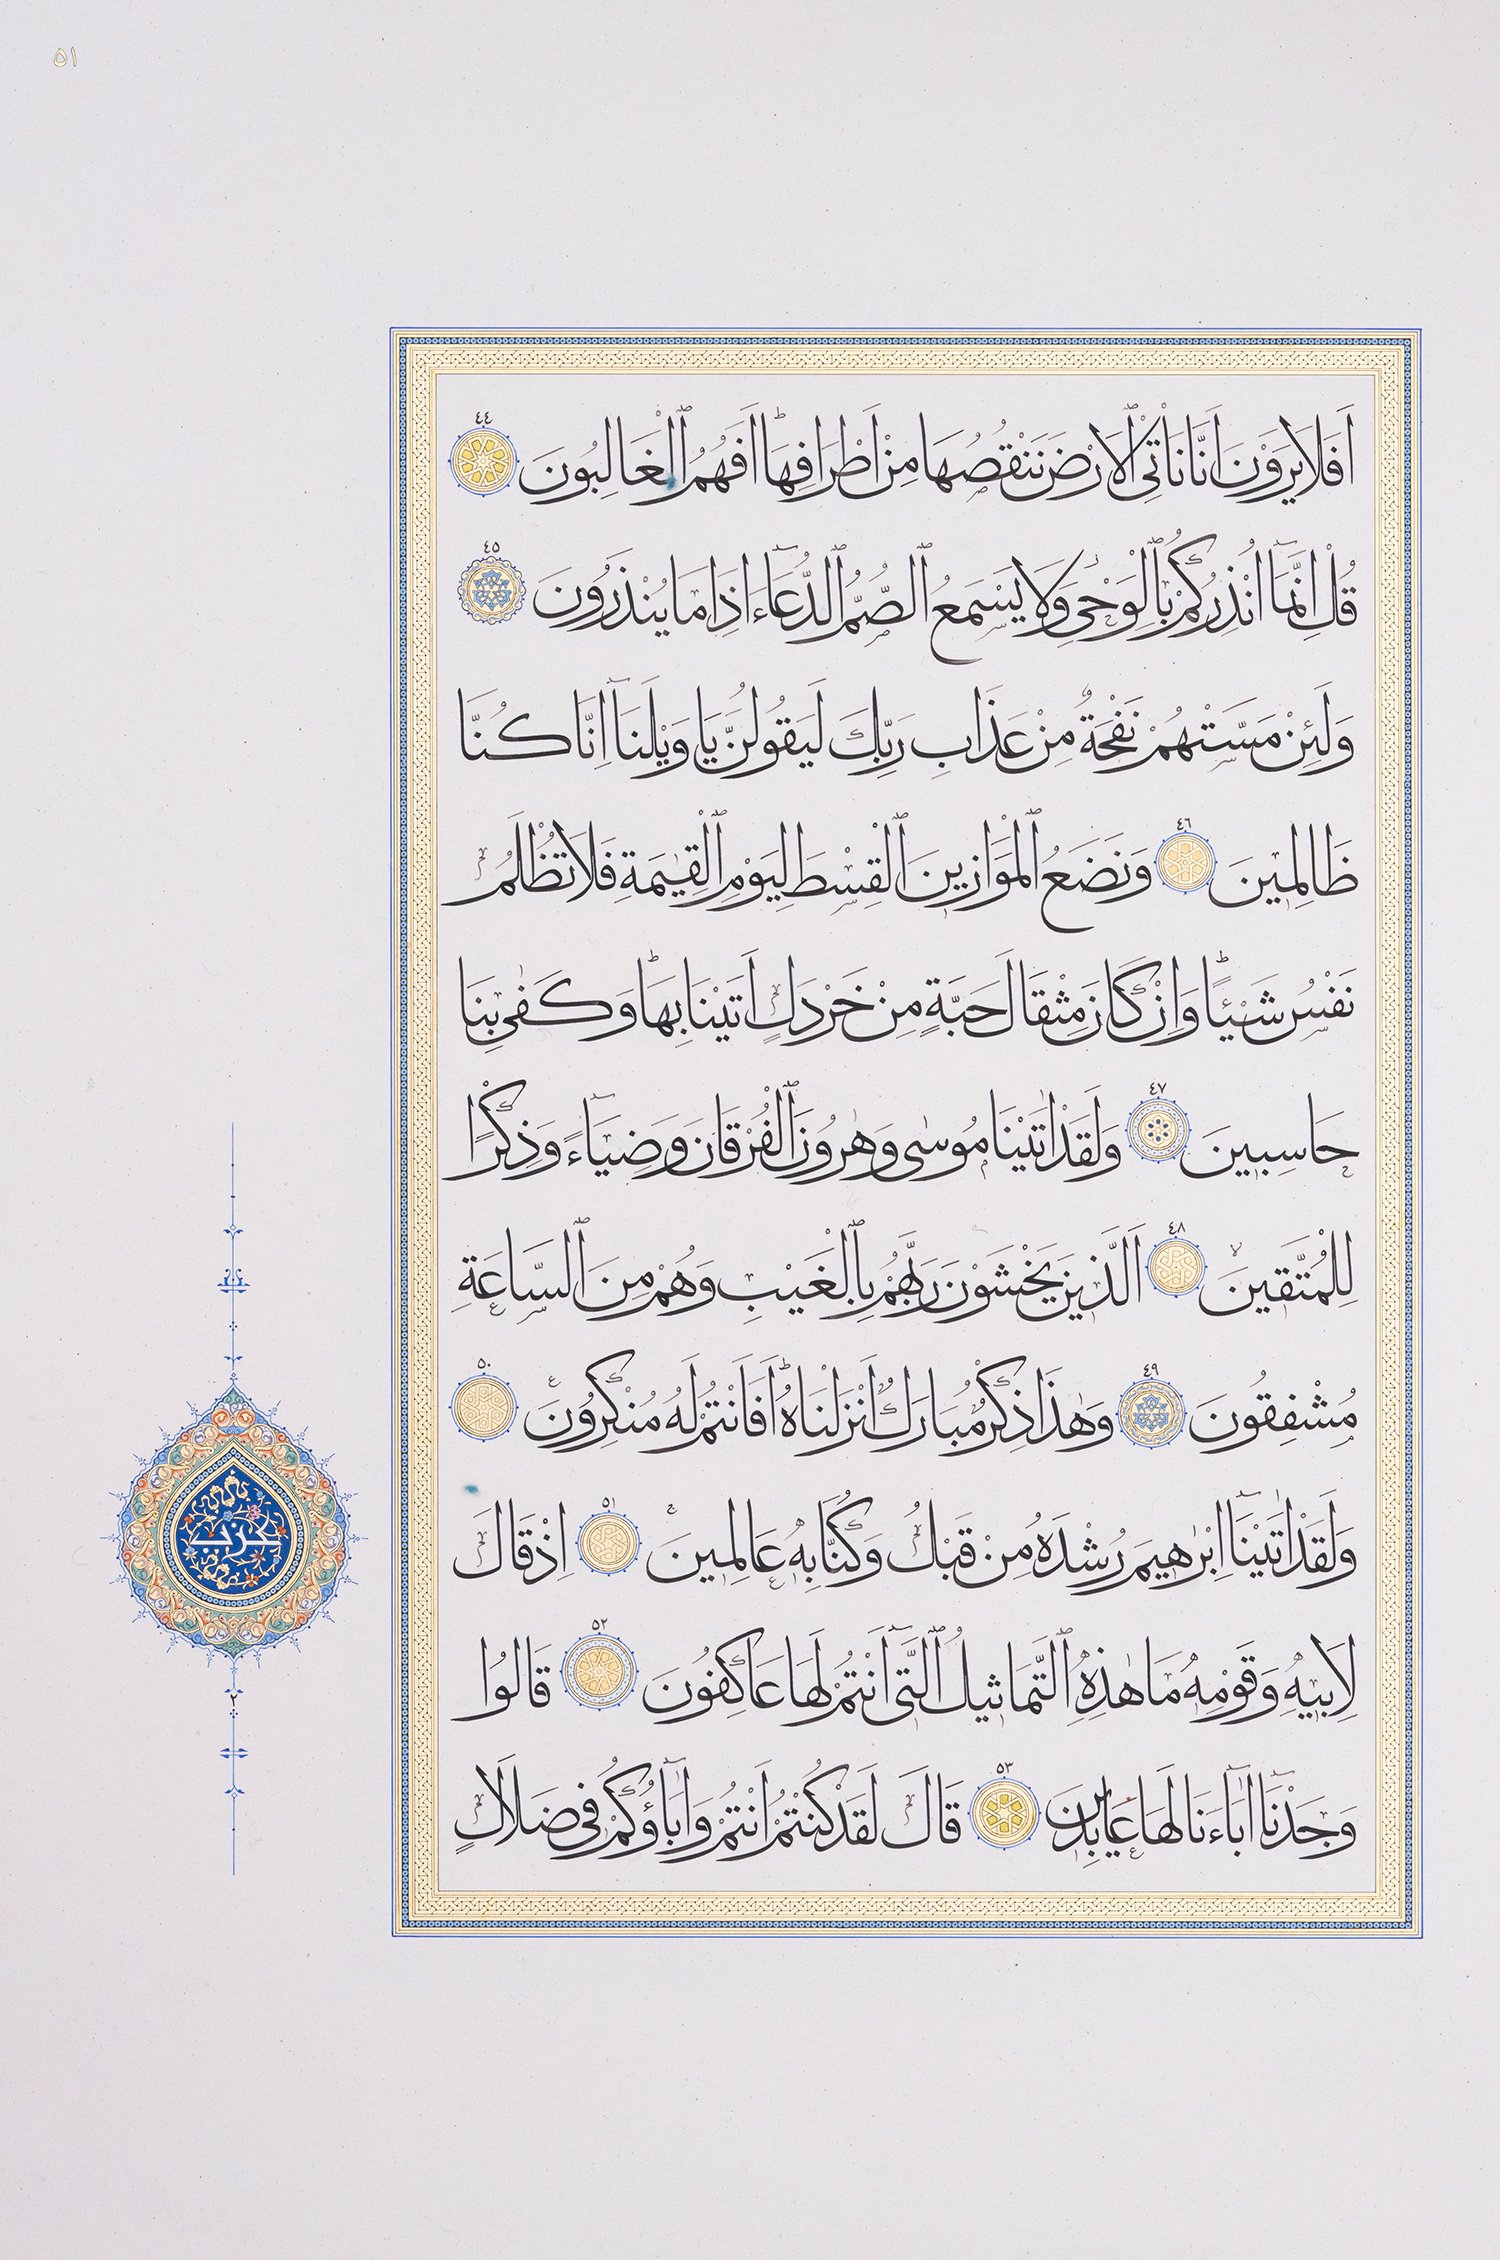 ٥١
اَفَلَا يَرَوْنَ اَنَّا نَاْتِى ٱلْاَرْضَ نَنْقُصُهَا مِنْ اَطْرَافِهَاۜ اَفَهُمُ ٱلْغَالِبُونَ ٤٤
قُلْ اِنَّمَٓا اُنْذِرُكُمْ بِٱلْوَحْىِ وَلَا يَسْمَعُ ٱلصُّمُّ ٱلدُّعَٓاءَ اِذَا مَا يُنْذَرُونَ ٤٥
وَلَئِنْ مَسَّتْهُمْ نَفْحَةٌ مِنْ عَذَابِ رَبِّكَ لَيَقُولُنَّ يَا وَيْلَنَٓا اِنَّا كُنَّا
ظَالِمِينَ ٤٦ وَنَضَعُ ٱلْمَوَازِينَ ٱلْقِسْطَ لِيَوْمِ ٱلْقِيٰمَةِ فَلَا تُظْلَمُ
نَفْسٌ شَيْـًٔاۜ وَاِنْ كَانَ مِثْقَالَ حَبَّةٍ مِنْ خَرْدَلٍ اَتَيْنَا بِهَاۜ وَكَفٰى بِنَا
حَاسِبِينَ ٤٧ وَلَقَدْ اٰتَيْنَا مُوسٰى وَهٰرُونَ ٱلْفُرْقَانَ وَضِيَٓاءً وَذِكْرًا
لِلْمُتَّقِينَ ٤٨ اَلَّذِينَ يَخْشَوْنَ رَبَّهُمْ بِٱلْغَيْبِ وَهُمْ مِنَ ٱلسَّاعَةِ
مُشْفِقُونَ ٤٩ وَهٰذَا ذِكْرٌ مُبَارَكٌ اَنْزَلْنَاهُۜ اَفَاَنْتُمْ لَهُ مُنْكِرُونَ ٥٠
وَلَقَدْ اٰتَيْنَٓا اِبْرٰهِيمَ رُشْدَهُ مِنْ قَبْلُ وَكُنَّا بِهِ عَالِمِينَ ٥١ اِذْ قَالَ
لِاَبِيهِ وَقَوْمِهِ مَا هٰذِهِ ٱلتَّمَاثِيلُ ٱلَّتِٓى اَنْتُمْ لَهَا عَاكِفُونَ ٥٢ قَالُوا
وَجَدْنَٓا اٰبَٓاءَنَا لَهَا عَابِدِينَ ٥٣ قَالَ لَقَدْ كُنْتُمْ اَنْتُمْ وَاٰبَٓاؤُكُمْ فِى ضَلَالٍ
حزب
٢